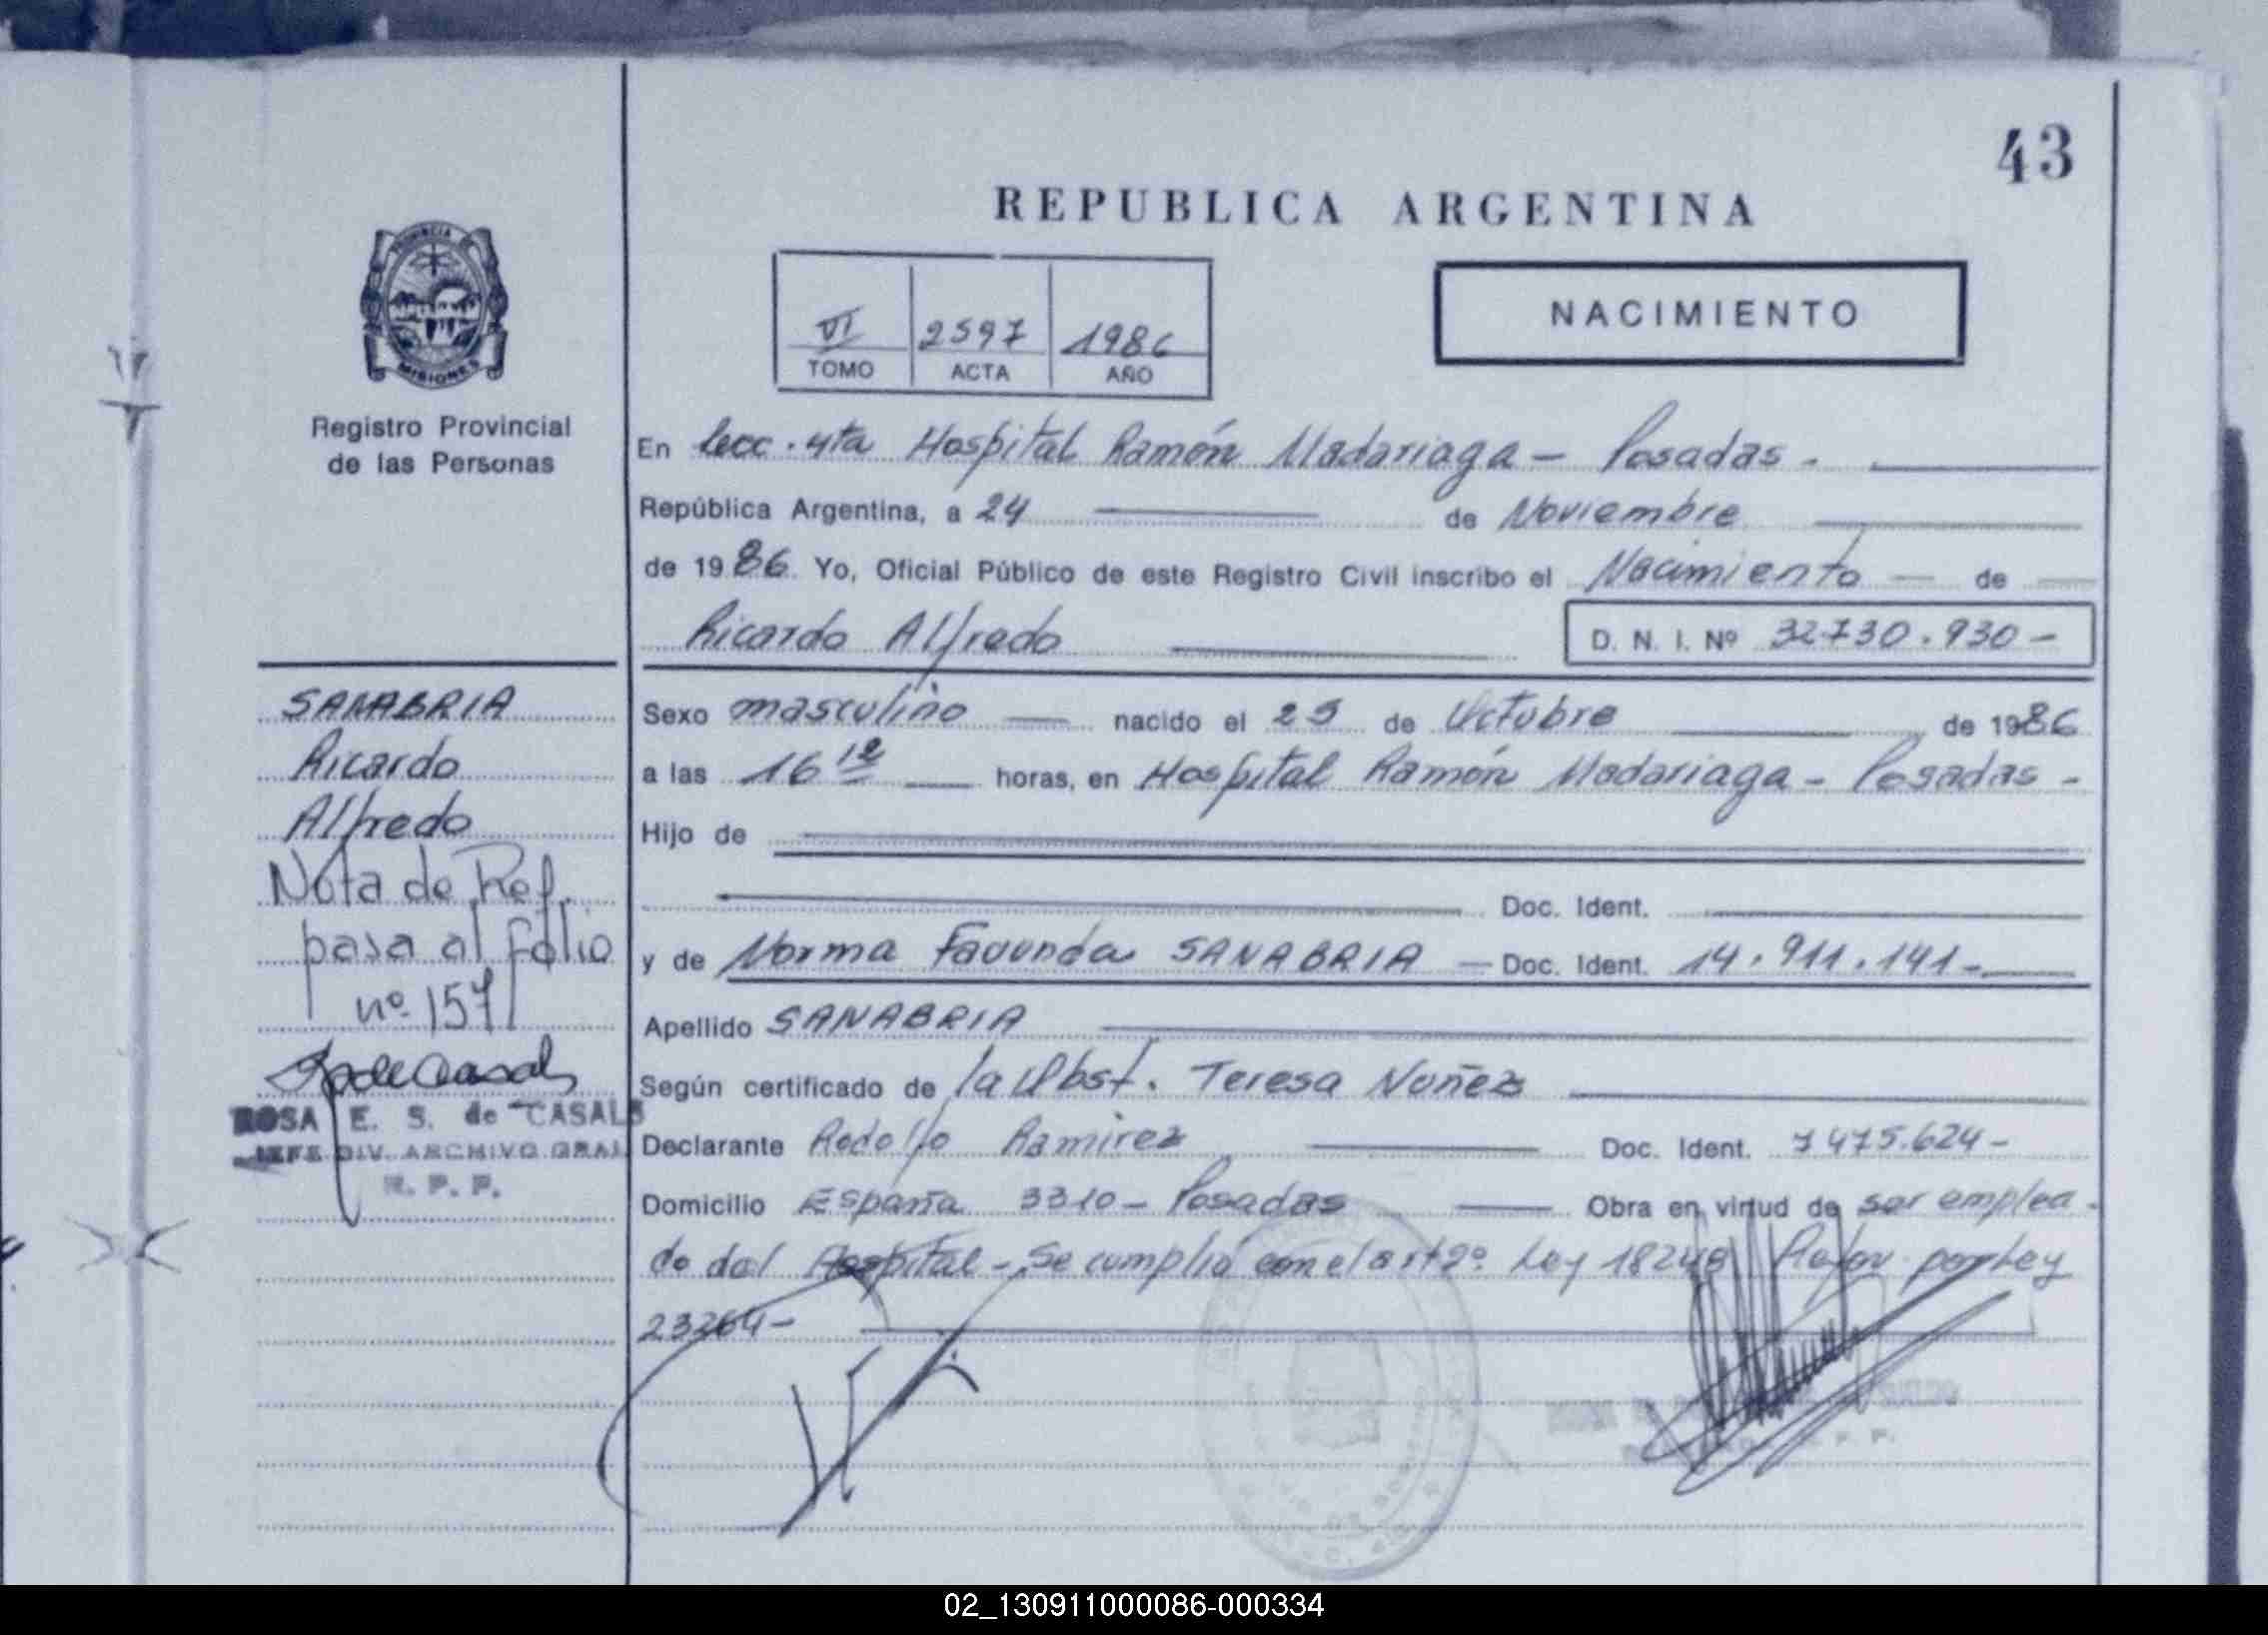 43
REPUBLICA ARGENTINA
PROVINCIA
MISIONES
Registro Provincial
de las Personas
VI 2597 1986
TOMO ACTA AÑO
NACIMIENTO
En Secc. 4ta Hospital Ramón Madariaga - Posadas -
República Argentina, a 24 de Noviembre
de 1986 Yo, Oficial Público de este Registro Civil inscribo el Nacimiento de
Ricardo Alfredo D. N. I. Nº 32730.930-
SANABRIA
Ricardo
Alfredo
Nota de Ref.
pasa al folio
nº 157
ROSA E. S. de CASALS
JEFE DIV. ARCHIVO GRAL
R. P. P.
Sexo masculino nacido el de Octubre de 1986
a las 16 12 horas, en Hospital Ramón Madariaga - Posadas -
Hijo de
Doc. Ident.
y de Norma Facunda SANABRIA - Doc. Ident. 14.911.141-
Apellido SANABRIA
Según certificado de la Obst. Teresa Nuñez
Declarante Rodolfo Ramirez Doc. Ident. 7475.624-
Domicilio España 3310 - Posadas Obra en virtud de ser emplea-
do del Hospital - Se cumplió con el art 2º Ley 18248 por Ley
23264-
02_130911000086-000334